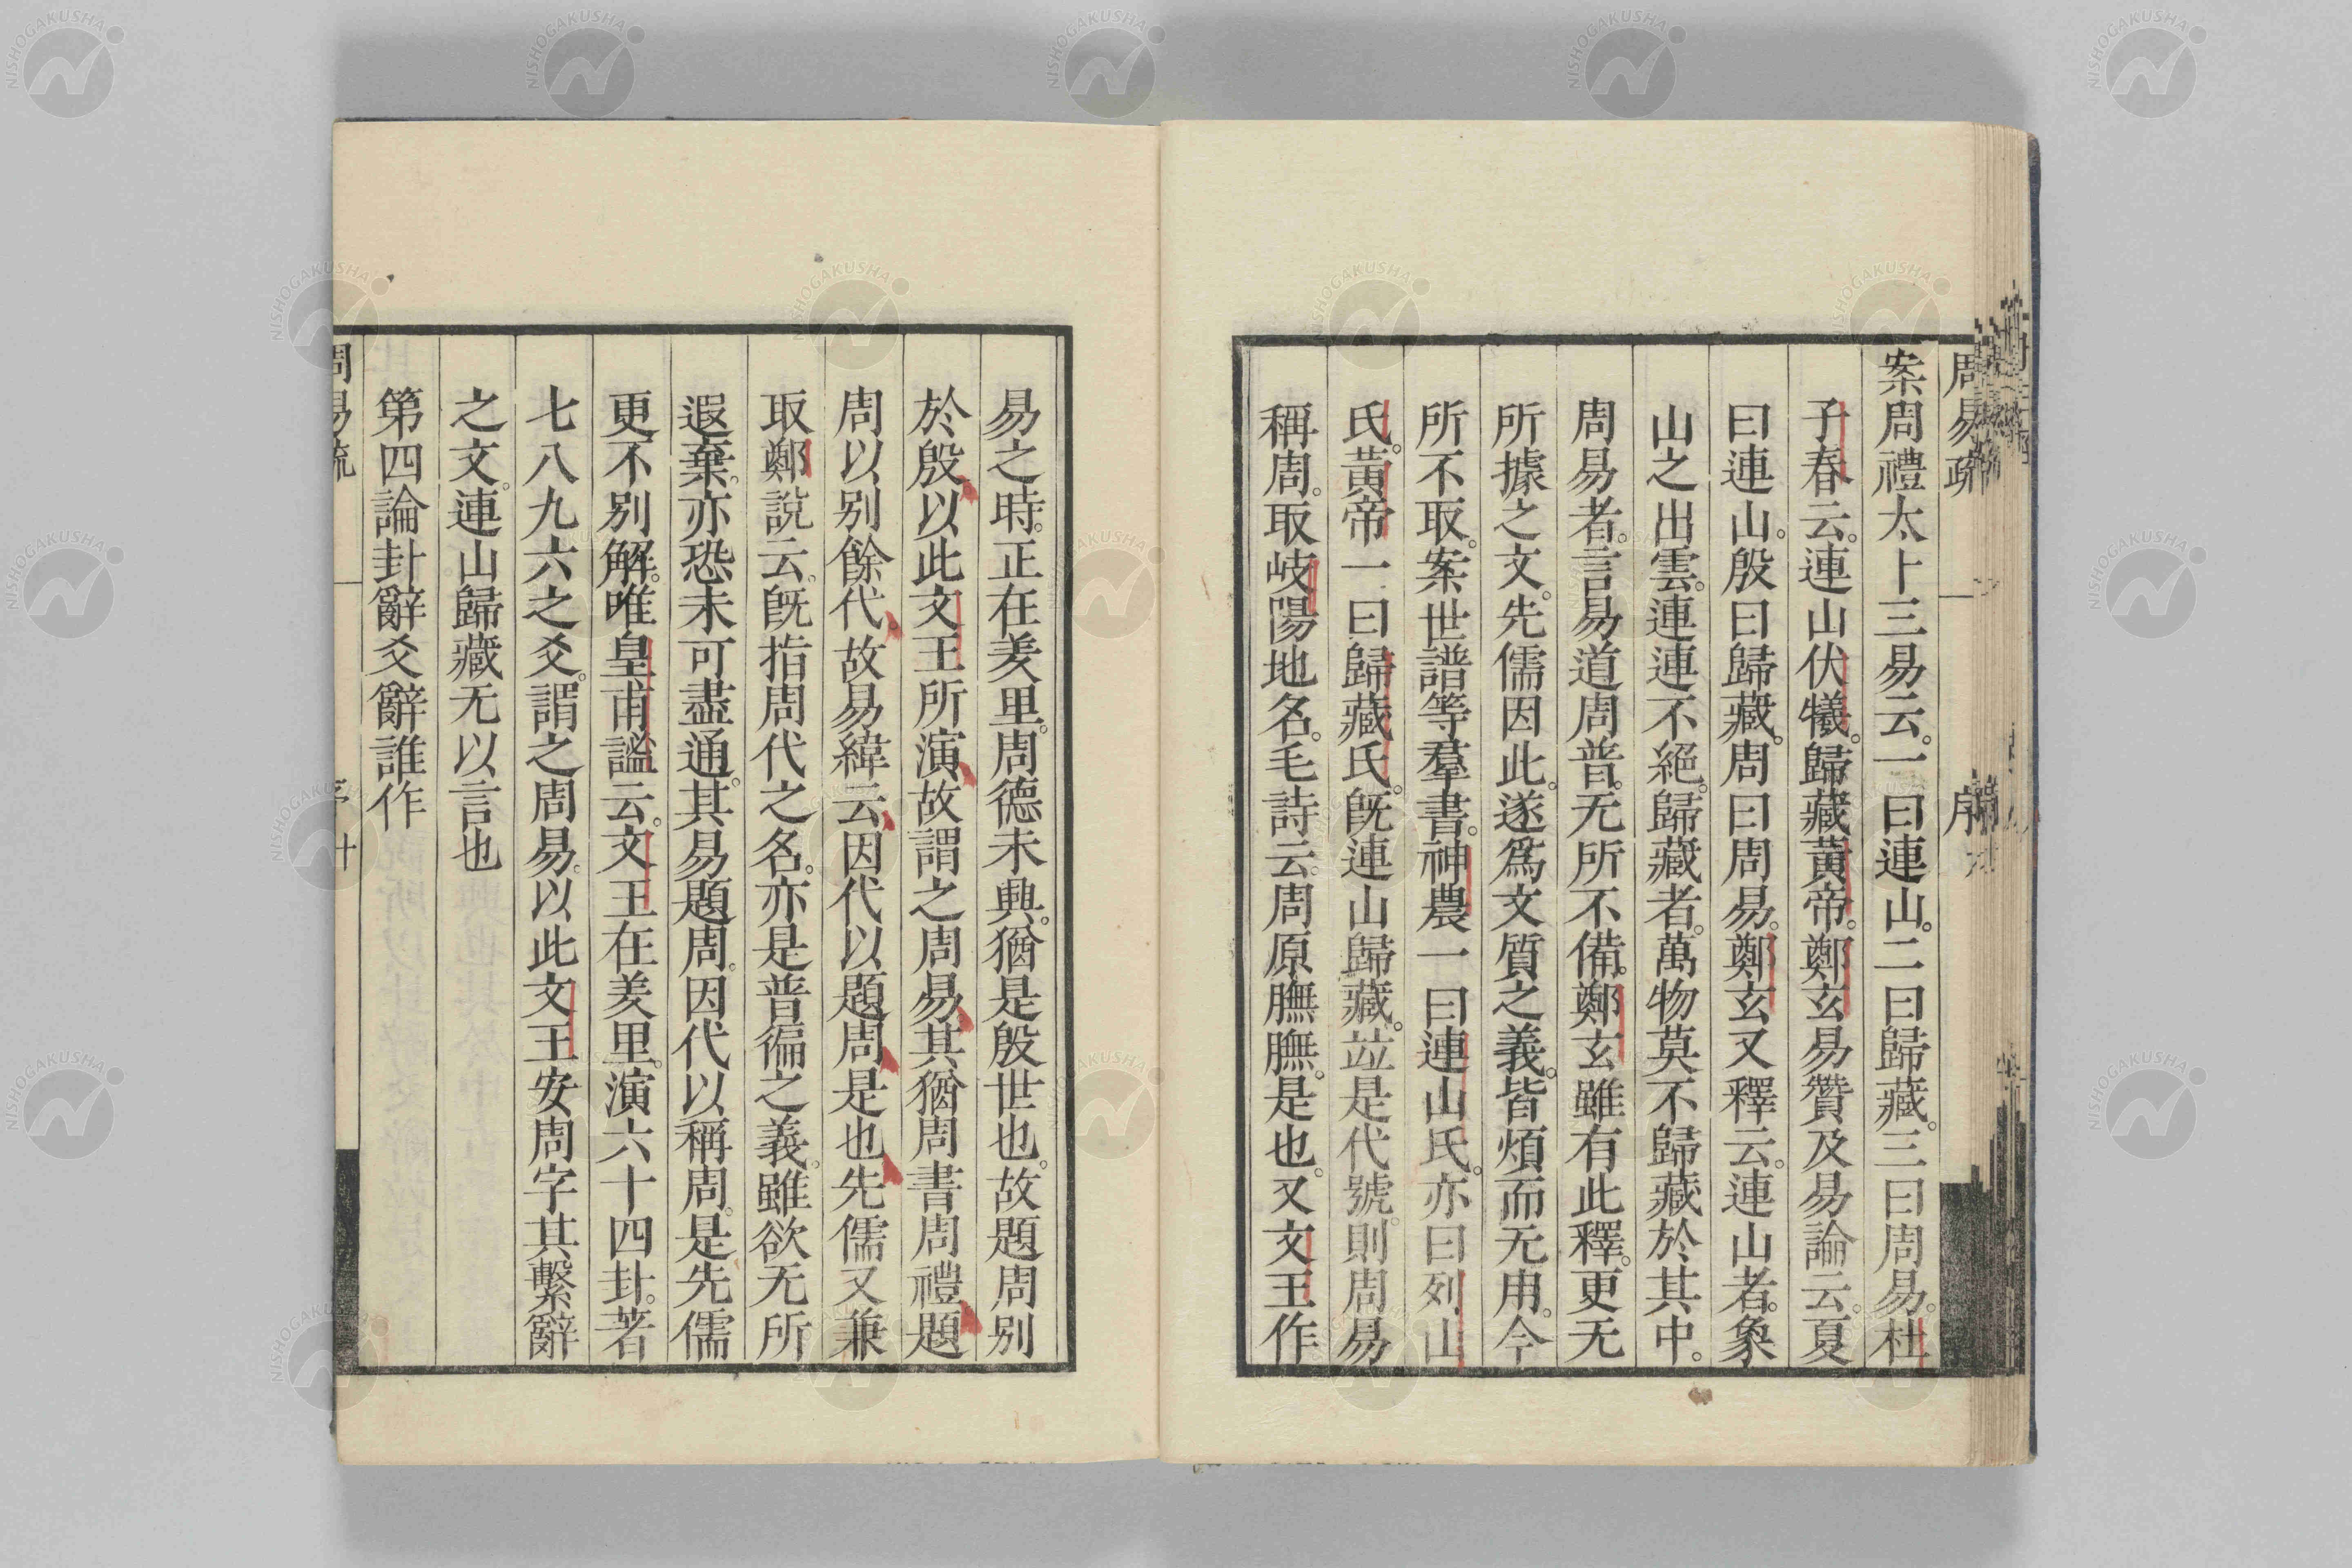 周易疏 序
案周禮太卜三易云。一曰連山。二曰歸藏。三曰周易。杜
子春云。連山伏犧。歸藏黃帝。鄭玄易贊及易論云。夏
曰連山。殷曰歸藏。周曰周易。鄭玄又釋云。連山者。象
山之出雲。連連不絕。歸藏者。萬物莫不歸藏於其中。
周易者。言易道周普。无所不備。鄭玄雖有此釋。更无
所據之文。先儒因此。遂爲文質之義。皆煩而无用。今
所不取。案世譜等羣書。神農一曰連山氏。亦曰列山
氏。黃帝一曰歸藏氏。旣連山歸藏。竝是代號。則周易
稱周。取岐陽地名。毛詩云。周原膴膴。是也。又文王作
易之時。正在羑里。周德未興。猶是殷世也。故題周别
於殷以此文王所演故謂之周易其猶周書周禮題
周以别餘代故易緯云因代以題周是也先儒又兼
取鄭說云。旣指周代之名。亦是普徧之義。雖欲无所
遐棄。亦恐未可盡通。其易題周。因代以稱周。是先儒
更不别解。唯皇甫謐云。文王在羑里。演六十四卦。著
七八九六之爻。謂之周易。以此文王安周字其繫辭
之文。連山歸藏无以言也
第四論卦辭爻辭誰作
周易疏 序 十
NISHOGAKUSHA